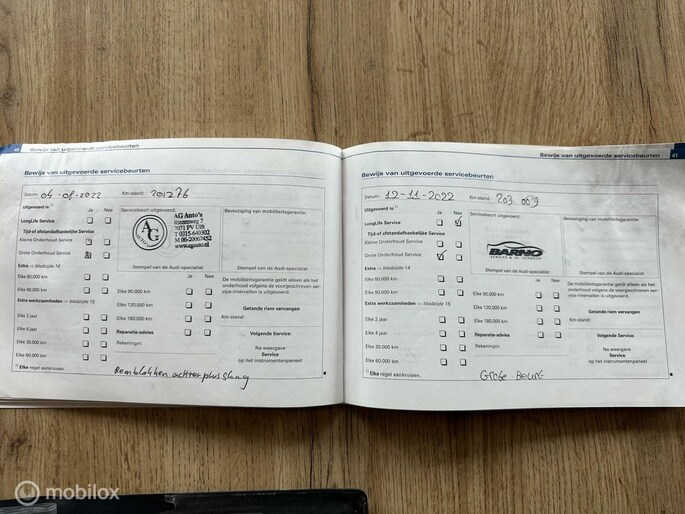 40
Bewijs van uitgevoerde servicebeurten
Bewijs van uitgevoerde servicebeurten
Datum: 04-08-2022 Km-stand: 201276
Uitgevoerd is:
Ja Nee
Servicebeurt uitgevoerd:
Bevestiging van mobiliteitsgarantie:
LongLife Service
Tijd of afstandafhankelijke Service
Kleine Onderhoud Service
Grote Onderhoud Service
AG
AG Auto's
7071 PV Ulft
T 0315-640302
M 06-20067452
www.agauto.nl
Stempel van de Audi-specialist
Stempel van de Audi-specialist
Extra ⇨ bladzijde 14
Ja Nee
De mobiliteitsgarantie geldt alleen als het
onderhoud volgens de voorgeschreven ser-
vice-intervallen is uitgevoerd.
Elke 60.000 km
Elke 90.000 km
Elke 90.000 km
Extra werkzaamheden ⇨ bladzijde 15
Elke 120.000 km
Getande riem vervangen
Elke 2 jaar
Elke 180.000 km
Km-stand:
Elke 4 jaar
Reparatie-advies
Volgende Service:
Elke 30.000 km
Rekeningnr.
Na weergave
Service
op het instrumentenpaneel
Elke 60.000 km
Elke regel aankruisen.
Remblokken achter plus slang
Bewijs van uitgevoerde servicebeurten 41
Bewijs van uitgevoerde servicebeurten
Datum: 12-11-2022 Km-stand: 203.069
Uitgevoerd is:
Ja Nee
Servicebeurt uitgevoerd:
Bevestiging van mobiliteitsgarantie:
LongLife Service
Tijd of afstandafhankelijke Service
Kleine Onderhoud Service
Grote Onderhoud Service
BARNO
Stempel van de Audi-specialist
Stempel van de Audi-specialist
Extra ⇨ bladzijde 14
Ja Nee
De mobiliteitsgarantie geldt alleen als het
onderhoud volgens de voorgeschreven ser-
vice-intervallen is uitgevoerd.
Elke 60.000 km
Elke 90.000 km
Elke 90.000 km
Extra werkzaamheden ⇨ bladzijde 15
Elke 120.000 km
Getande riem vervangen
Elke 2 jaar
Elke 180.000 km
Km-stand:
Elke 4 jaar
Reparatie-advies
Volgende Service:
Elke 30.000 km
Rekeningnr.
Na weergave
Service
op het instrumentenpaneel
Elke 60.000 km
Elke regel aankruisen.
Grote Beurt
mobilox